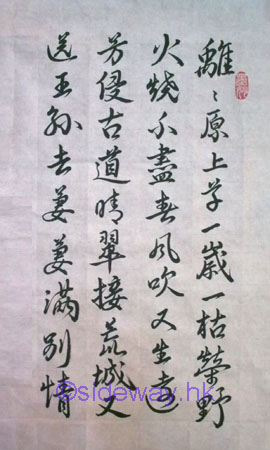 離〻原上草一歲一枯榮野
火燒不盡春風吹又生遠
芳侵古道晴翠接荒城又
送王孫去萋萋滿別情
©sideway.hk